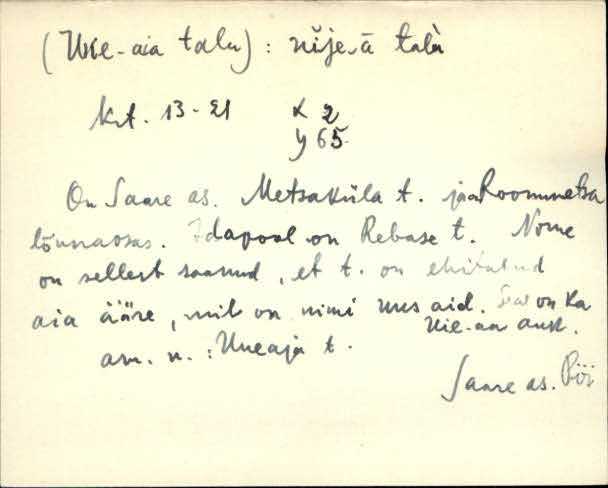 (Uue-aia talu): ŭije-ā talà
krt. 13-21 x 2
y 65.
On Saare as. Metsaküla t. ja Roommetsa
lõunaosas. Idapool on Rebase t. Nome
on sellest saanud, et t. on ehitatud
aia ääre, mil on nimi uus aid. Seal on ka
Uie-aa auk.
am. n.: Uueaja t.
Saare as.